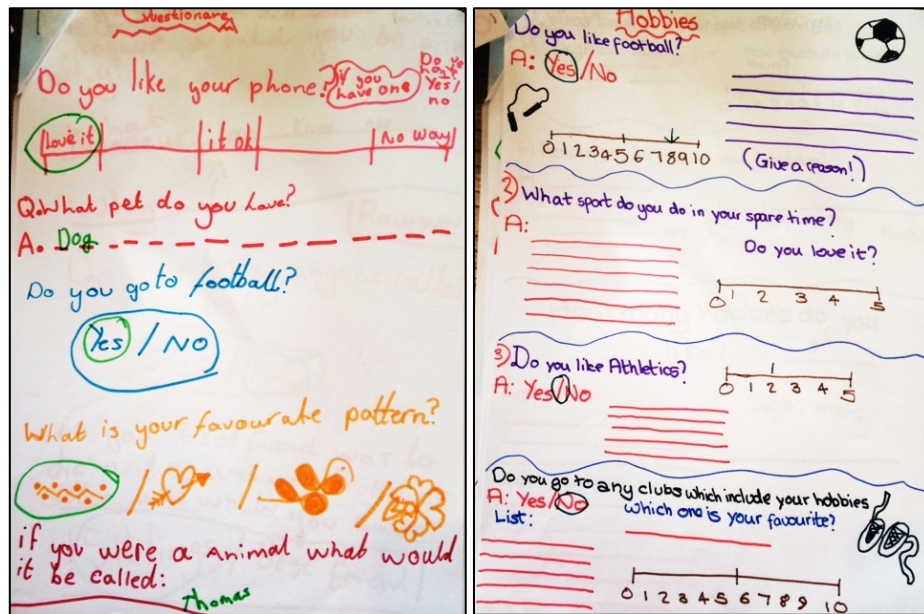 Questionare
Do you like your phone? if you have one
Yes/
no
Love it it ok No way
Q. What pet do you have?
A. Dog
Do you go to football?
Yes / No
What is your favourate pattern?
/ / /
if you were a Animal what would
it be called:
Thomas
Hobbies
Do you like football?
A: Yes/No
0 1 2 3 4 5 6 7 8 9 10
(Give a reason!)
2) What sport do you do in your spare time?
A:
Do you love it?
0 1 2 3 4 5
3) Do you like Athletics?
A: Yes/No
0 1 2 3 4 5
Do you go to any clubs which include your hobbies
A: Yes/No
List:
which one is your favourite?
0 1 2 3 4 5 6 7 8 9 10